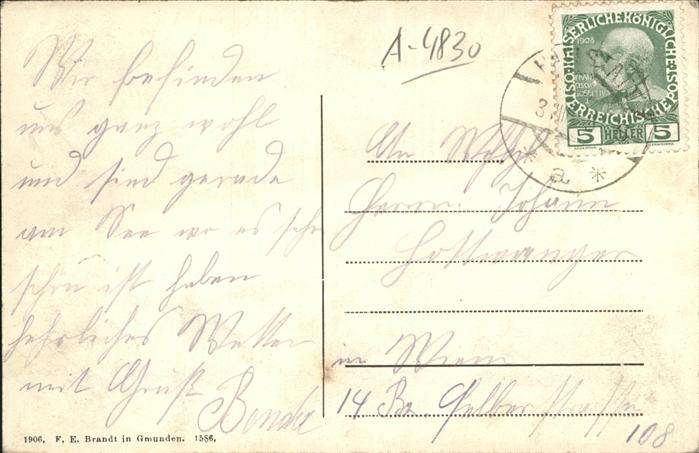 Wir befinden
uns ganz wohl
und sind gerade
am See wo es sehr
schön ist haben
herrliches Wetter
mit Gruß
A-4830
KAISERLICHE KÖNIGLICHE ÖSTERREICHISCHE
1908
5 HELLER 5
* a *
Herrn Johann
in Wien
14 Bz. Selberstrasse
108
1906, F. E. Brandt in Gmunden. 1586,